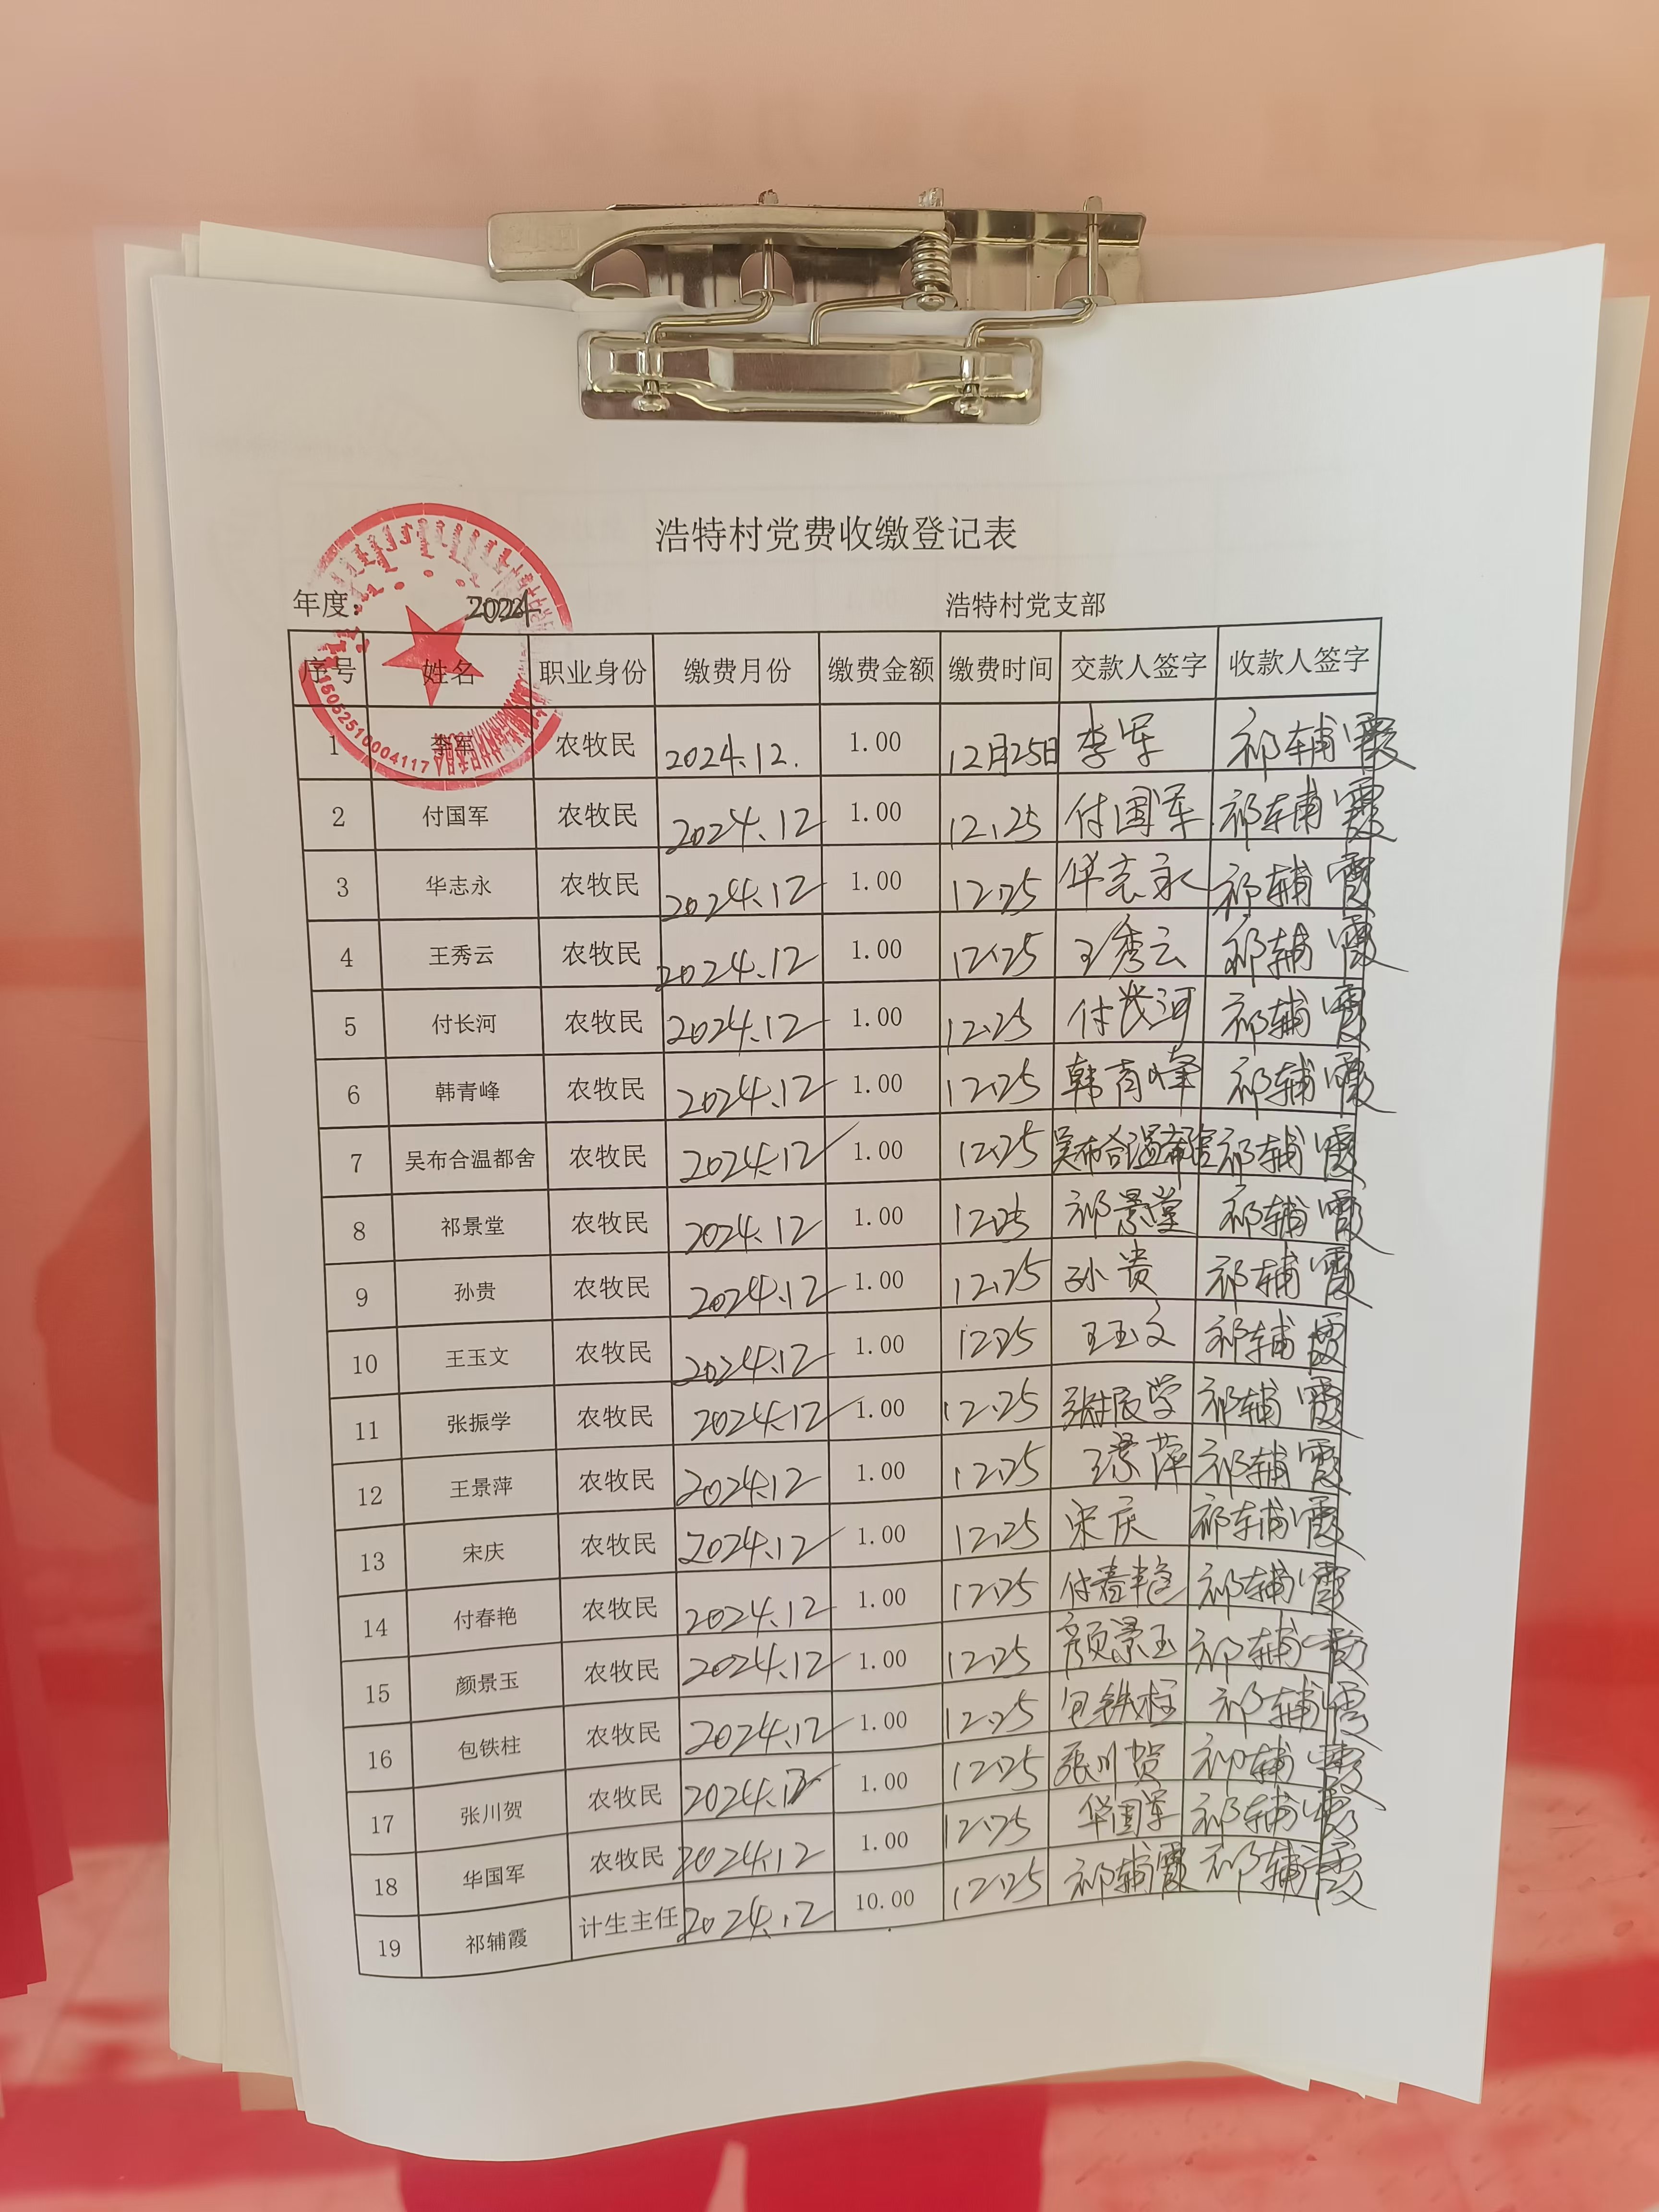 浩特村党费收缴登记表
年度: 2024 浩特村党支部
序号 姓名 职业身份 缴费月份 缴费金额 缴费时间 交款人签字 收款人签字
1 李军 农牧民 2024.12. 1.00 12月25日 李军 祁辅霞
2 付国军 农牧民 2024.12 1.00 12.25 付国军 祁辅霞
3 华志永 农牧民 2024.12 1.00 12.25 华志永 祁辅霞
4 王秀云 农牧民 2024.12 1.00 12.25 王秀云 祁辅霞
5 付长河 农牧民 2024.12 1.00 12.25 付长河 祁辅霞
6 韩青峰 农牧民 2024.12 1.00 12.25 韩青峰 祁辅霞
7 吴布合温都舍 农牧民 2024.12 1.00 12.25 吴布合温都舍 祁辅霞
8 祁景堂 农牧民 2024.12 1.00 12.25 祁景堂 祁辅霞
9 孙贵 农牧民 2024.12 1.00 12.25 孙贵 祁辅霞
10 王玉文 农牧民 2024.12 1.00 12.25 王玉文 祁辅霞
11 张振学 农牧民 2024.12 1.00 12.25 张振学 祁辅霞
12 王景萍 农牧民 2024.12 1.00 12.25 王景萍 祁辅霞
13 宋庆 农牧民 2024.12 1.00 12.25 宋庆 祁辅霞
14 付春艳 农牧民 2024.12 1.00 12.25 付春艳 祁辅霞
15 颜景玉 农牧民 2024.12 1.00 12.25 颜景玉 祁辅霞
16 包铁柱 农牧民 2024.12 1.00 12.25 包铁柱 祁辅霞
17 张川贺 农牧民 2024.12 1.00 12.25 张川贺 祁辅霞
18 华国军 农牧民 2024.12 1.00 12.25 华国军 祁辅霞
19 祁辅霞 计生主任 2024.12 10.00 12.25 祁辅霞 祁辅霞
15052510004117